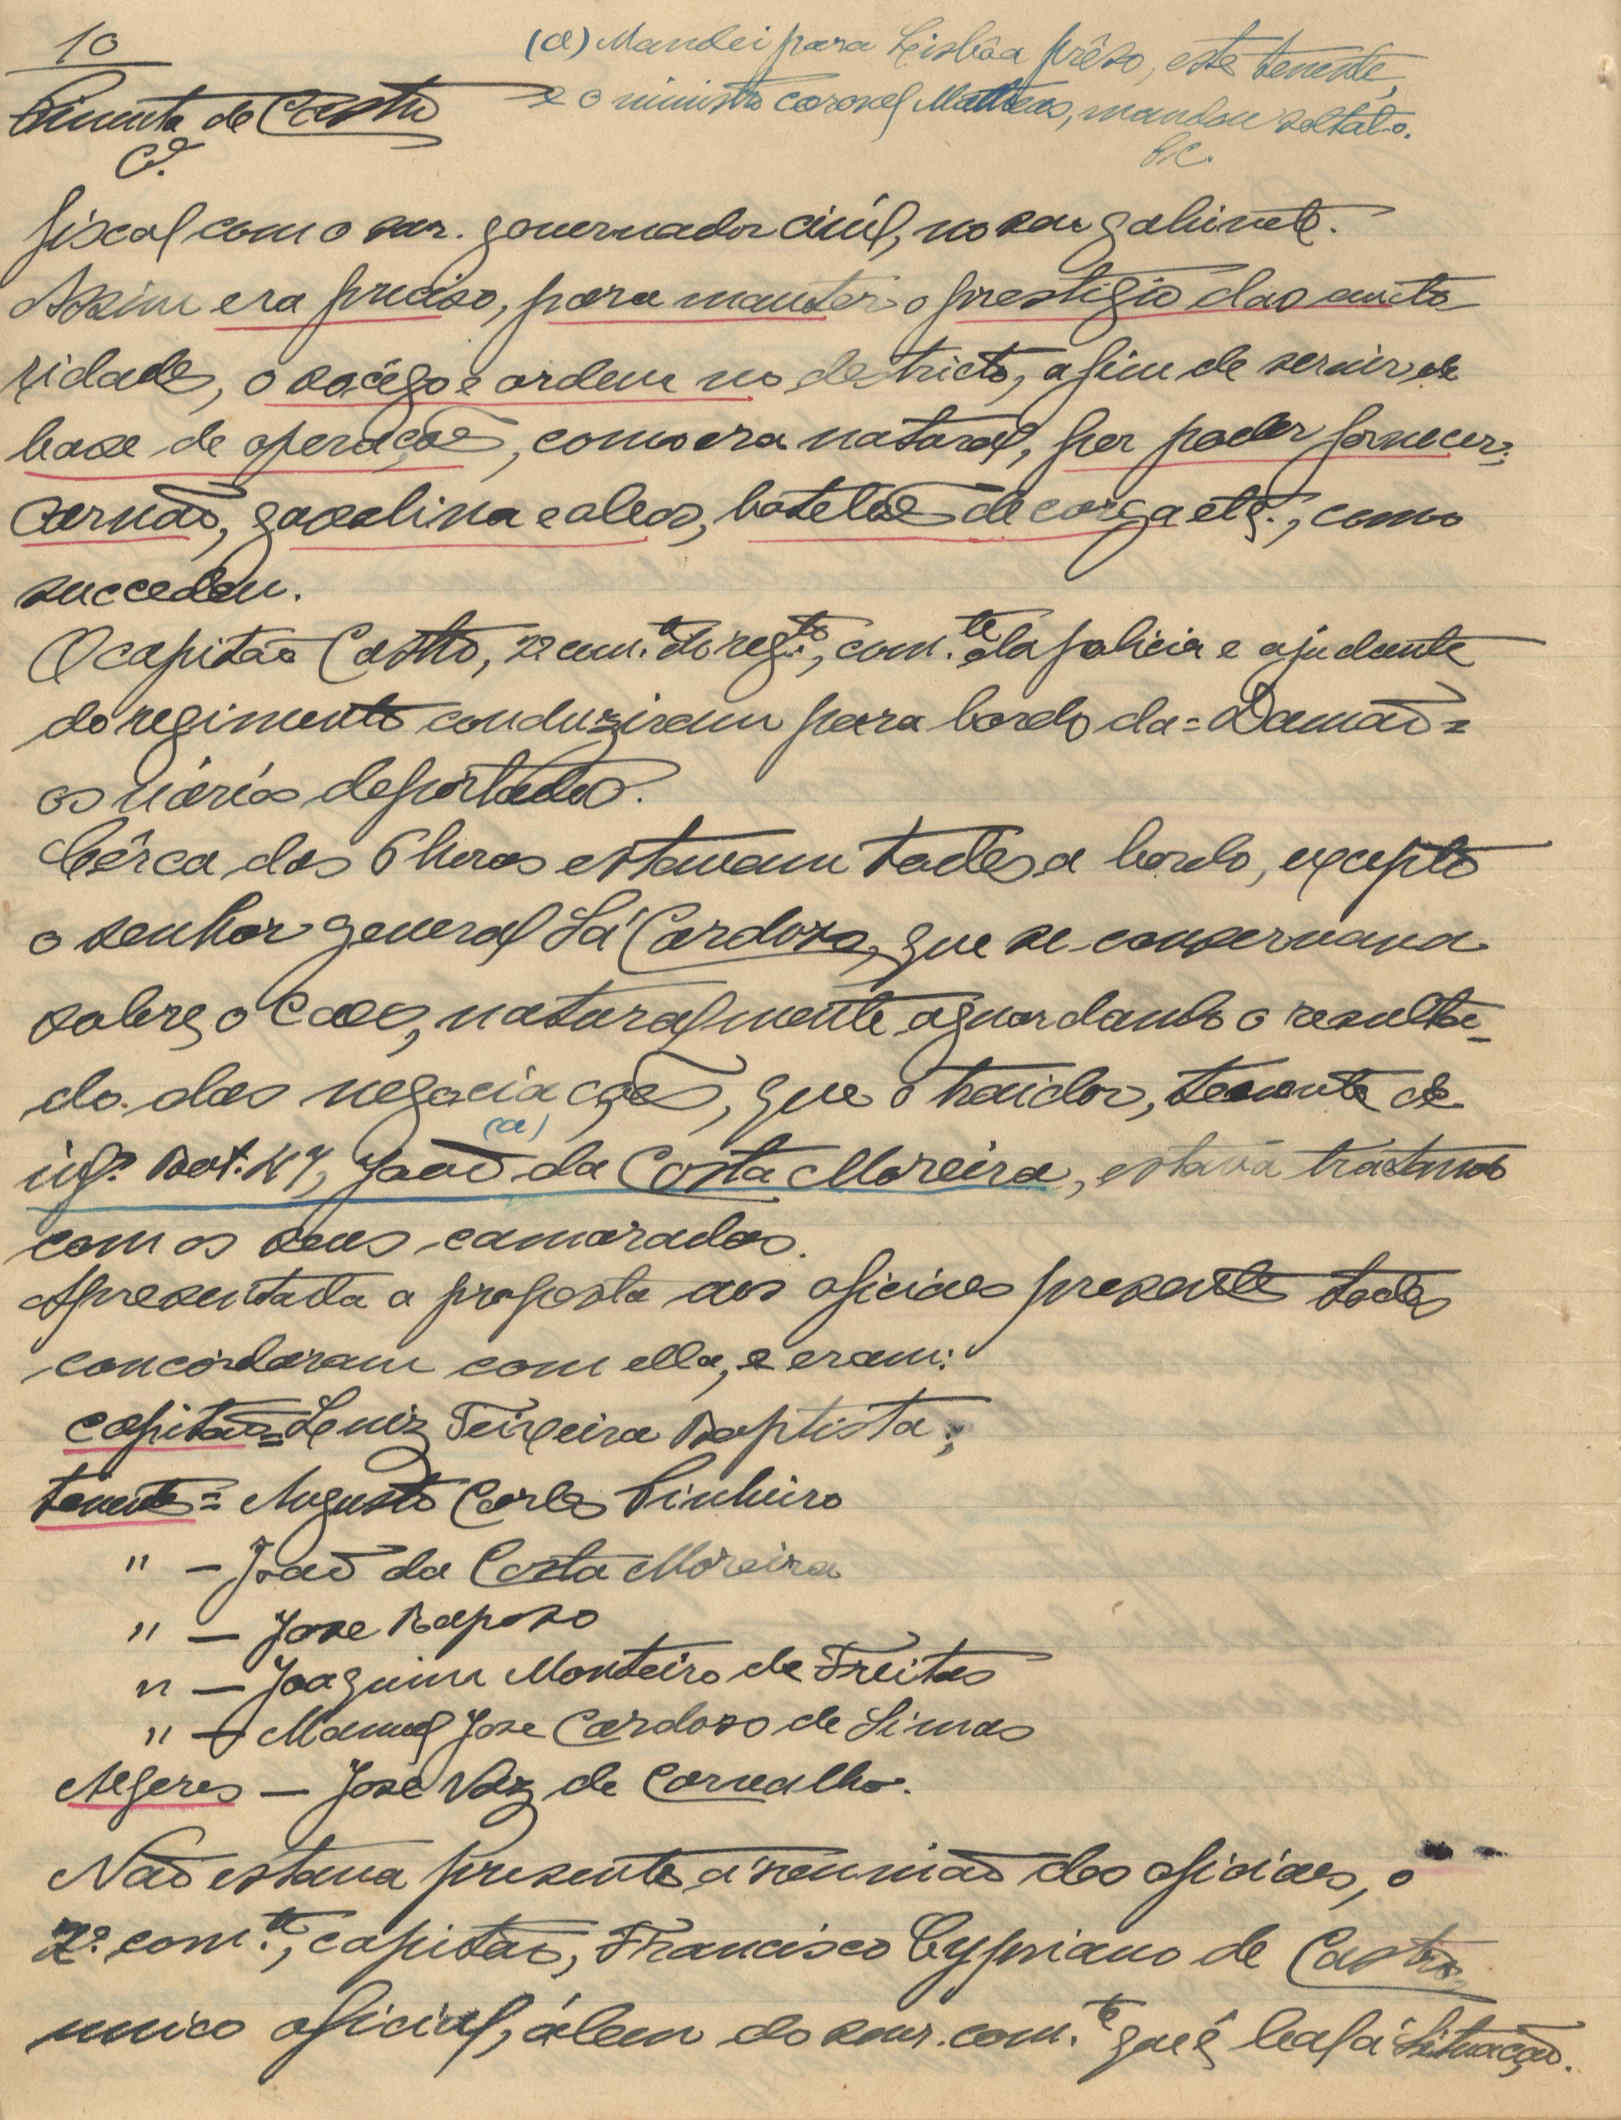 10
(a) Mandei para Lisbôa prêso, este tenente,
e o ministro coronel Matheus, mandou soltal-o.
P.C.
Pimenta de Castro
C.el
fiscal com o snr. governador civil, no seu gabinete.
Assim era preciso, para manter o prestigio das auto-
ridades, o socêgo e ordem no destricto, afim de servir de
base de operações, como era natural, por poder fornecer:
carvão, gasolina e oleos, batelões de carga etc., como
succedeu.
O capitão Castro, 2º com.te do reg.to, com.te da policia e ajudante
do regimento conduziram para bordo da = Damão =
os vários deportados.
Cêrca das 6 horas estavam todos a bordo, excepto
o senhor general Sá Cardoso, que se conservava
sobre o Caes, naturalmente aguardando o resulta-
do das negociações, que o traidor, tenente de
(a)
inf.ª Bat. 47, João da Costa Moreira, estava tratando
com os seus camaradas.
Apresentada a proposta aos oficiaes presentes todos
concordaram com ella, e eram:
capitão = Luiz Teixeira Baptista;
tenente = Augusto Carlos Pinheiro
" — João da Costa Moreira
" — Jose Raposo
" — Joaquim Monteiro de Freitas
" — Manuel Jose Cardoso de Simas
Alferes — José Vaz de Carvalho.
Não estava presente á reunião dos oficiaes, o
2º com.te, capitão, Francisco Cypriano de Castro,
unico oficial, álem do snr. com.te que é leal á situação.